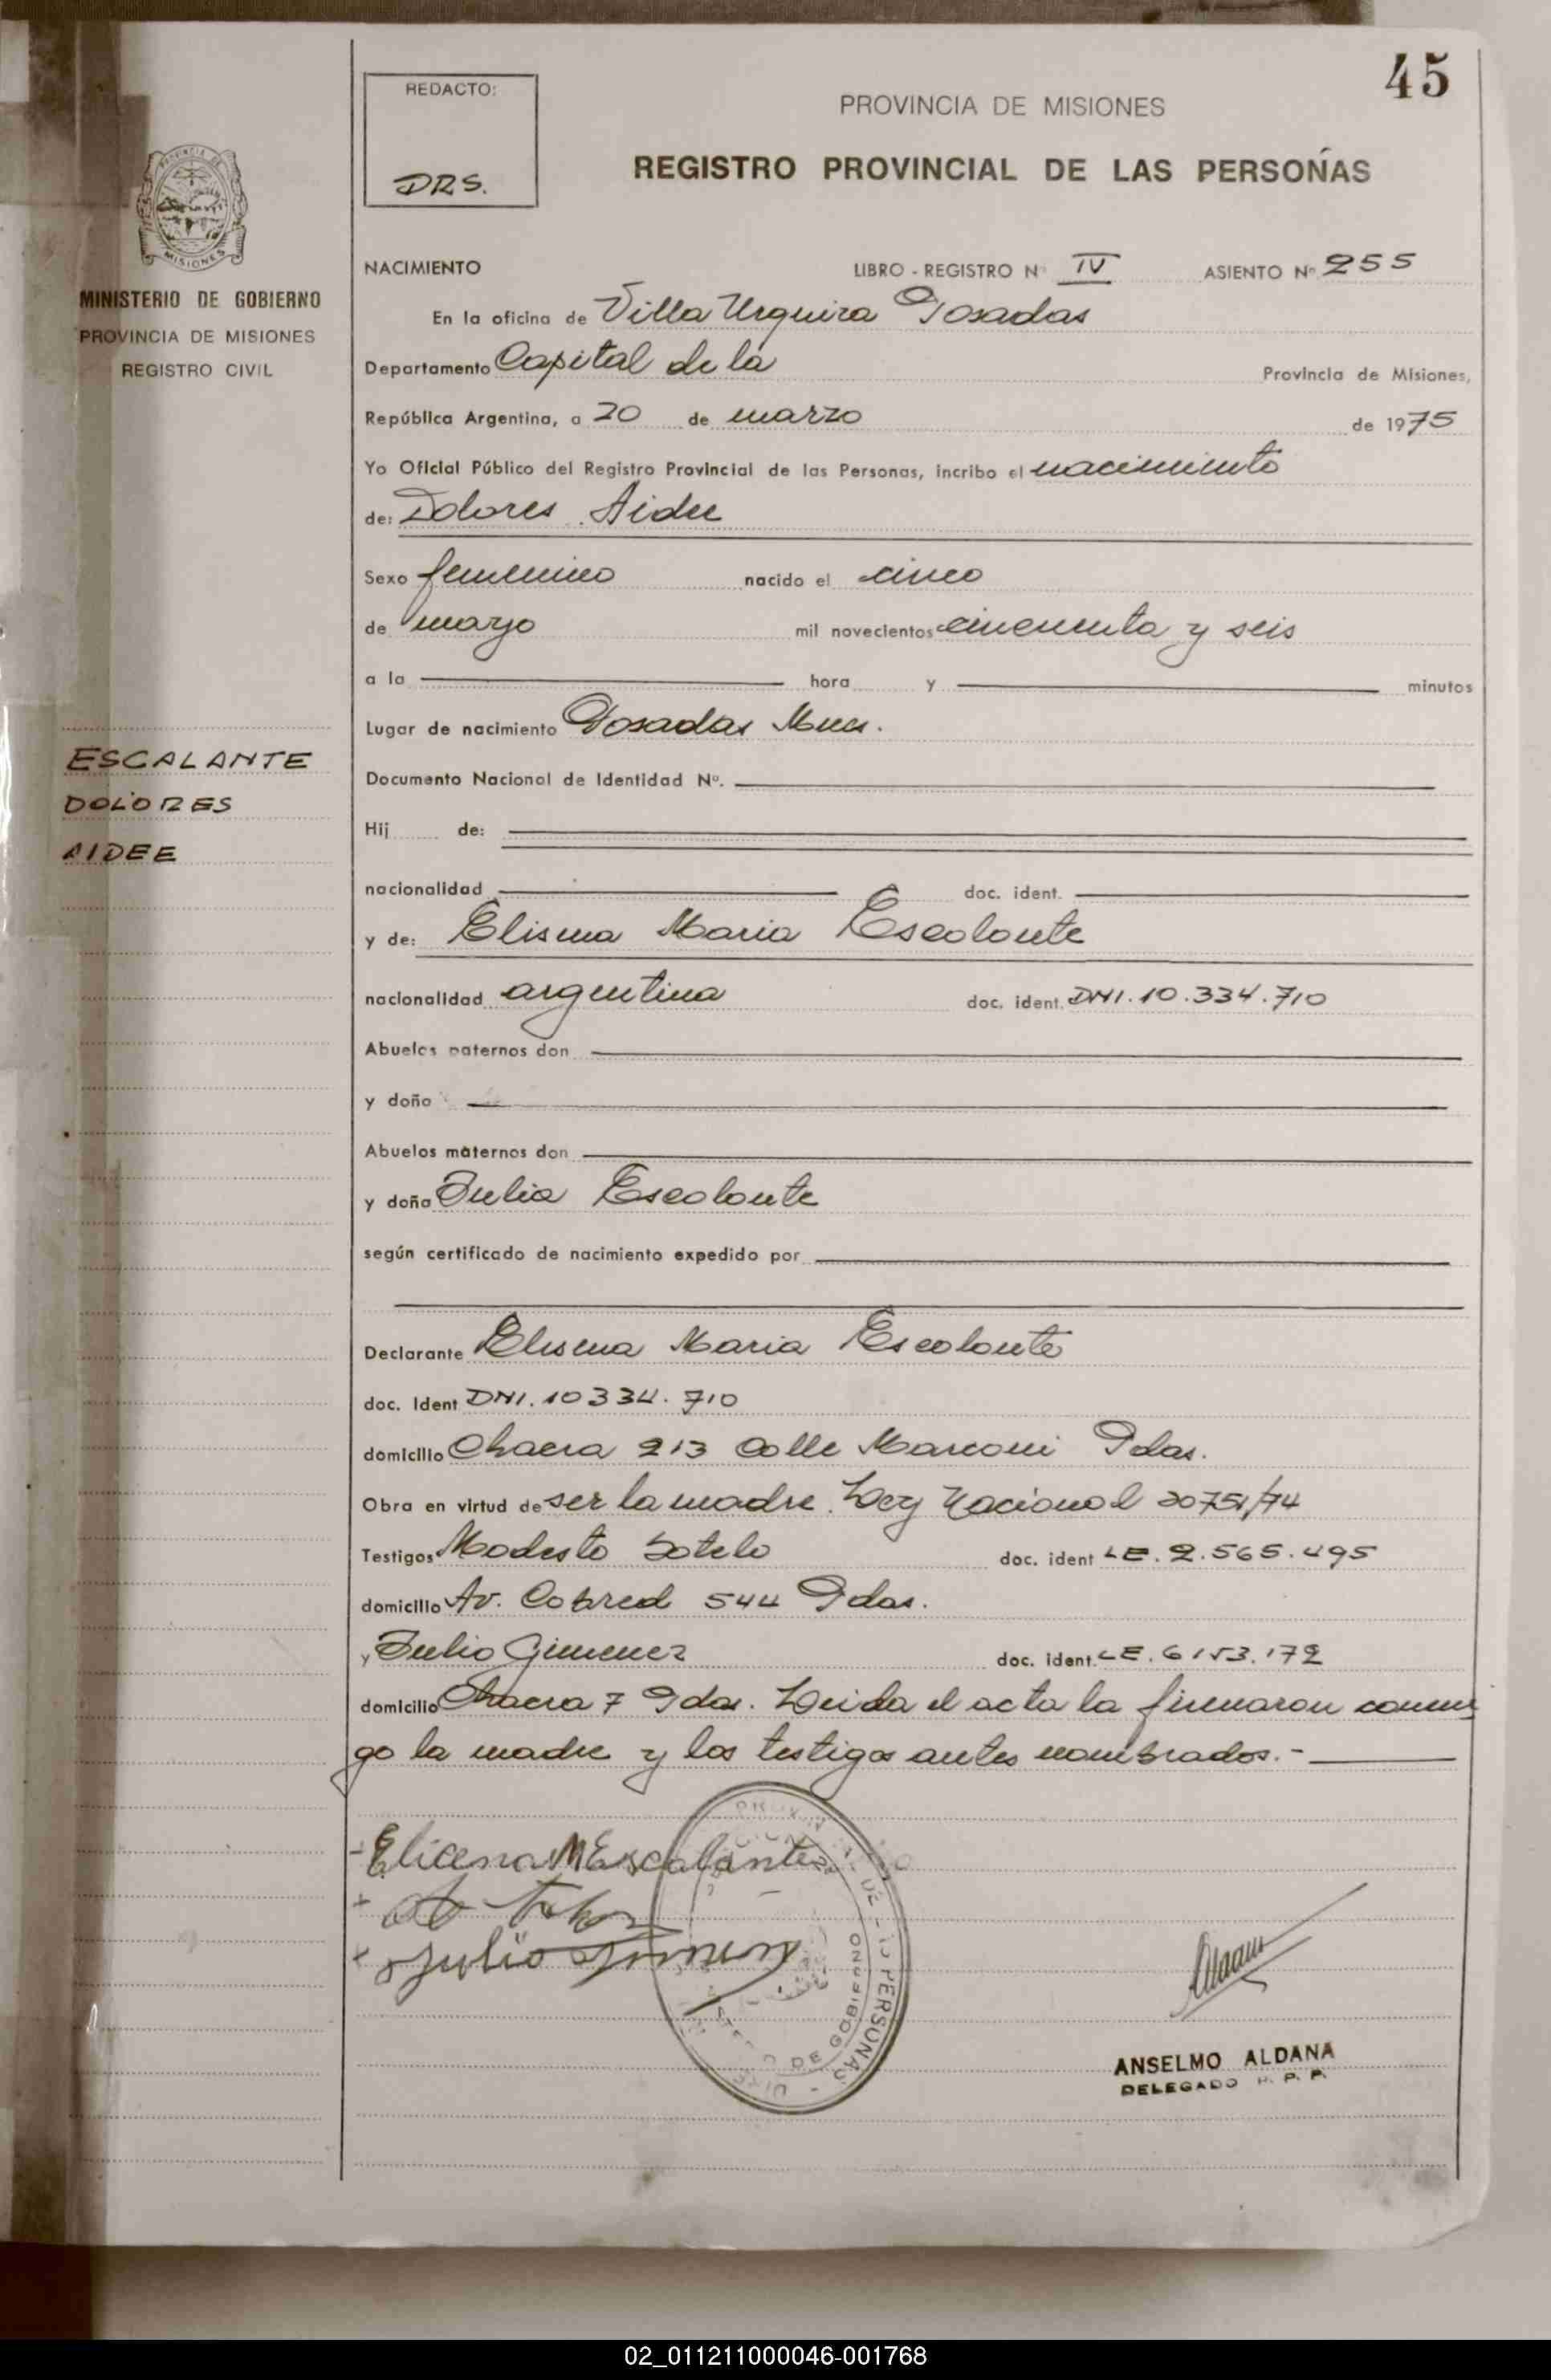 45
REDACTO:
DRS.
PROVINCIA DE MISIONES
REGISTRO PROVINCIAL DE LAS PERSONAS
MINISTERIO DE GOBIERNO
PROVINCIA DE MISIONES
REGISTRO CIVIL
NACIMIENTO LIBRO - REGISTRO Nº IV ASIENTO Nº 255
En la oficina de Villa Urquiza Posadas
Departamento Capital de la Provincia de Misiones,
República Argentina, a 20 de marzo de 1975
Yo Oficial Público del Registro Provincial de las Personas, incribo el nacimiento
de: Dolores Aidee
Sexo femenino nacido el cinco
de mayo mil novecientos cincuenta y seis
a la hora y minutos
Lugar de nacimiento Posadas Mnes.
ESCALANTE
DOLORES
AIDEE
Documento Nacional de Identidad Nº.
Hij de:
nacionalidad doc. ident.
y de: Elisena Maria Escalante
nacionalidad argentina doc. ident. DNI. 10.334.710
Abuelos paternos don
y doña
Abuelos maternos don
y doña Julia Escalante
según certificado de nacimiento expedido por
Declarante Elisena Maria Escalante
doc. Ident DNI. 10334.710
domicilio Chacra 213 Calle Marconi Pdas.
Obra en virtud de ser la madre. Ley Nacional 20751/74
Testigos Modesto Sotelo doc. ident LE. 2.565.495
domicilio Av. Cabred 544 Pdas.
y Julio Gimenez doc. ident. LE. 6153.172
domicilio Chacra 7 Pdas. Leida el acta la firmaron conmi
go la madre y los testigos antes nombrados.-
Elicena M Escalante
Julio Jimenez
DE GOBIERNO
PERSONAS
ANSELMO ALDANA
DELEGADO R. P. P.
02_011211000046-001768